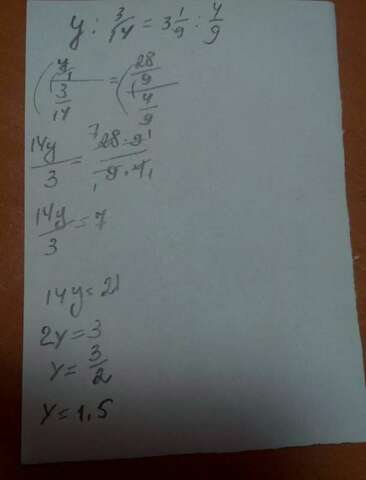 y : 3/14 = 3 1/9 : 4/9
(y/1)/(3/14) = (28/9)/(4/9)
14y/3 = 28·9/9·4 7 1 1 1
14y/3 = 7
14y = 21
2y = 3
y = 3/2
y = 1,5